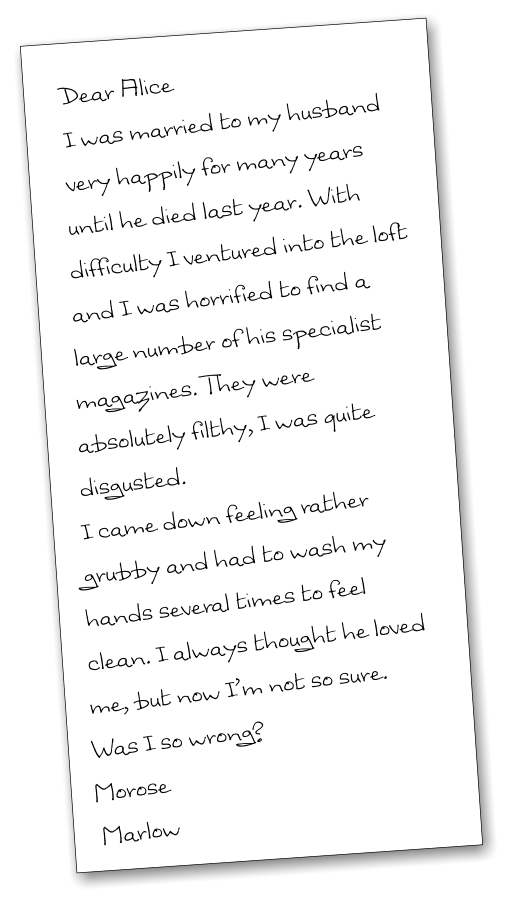 Dear Alice
I was married to my husband
very happily for many years
until he died last year. With
difficulty I ventured into the loft
and I was horrified to find a
large number of his specialist
magazines. They were
absolutely filthy, I was quite
disgusted.
I came down feeling rather
grubby and had to wash my
hands several times to feel
clean. I always thought he loved
me, but now I'm not so sure.
Was I so wrong?
Morose
Marlow